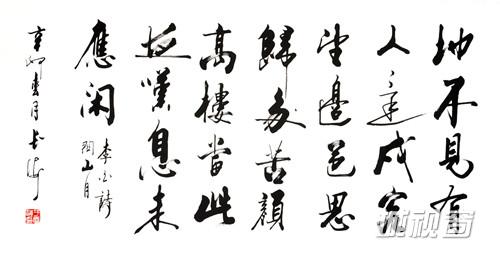 地不見有
人還戍客
望邊邑思
歸多苦顏
高樓當此
夜嘆息未
應闲
李白詩
関山月
辛卯月
视窗